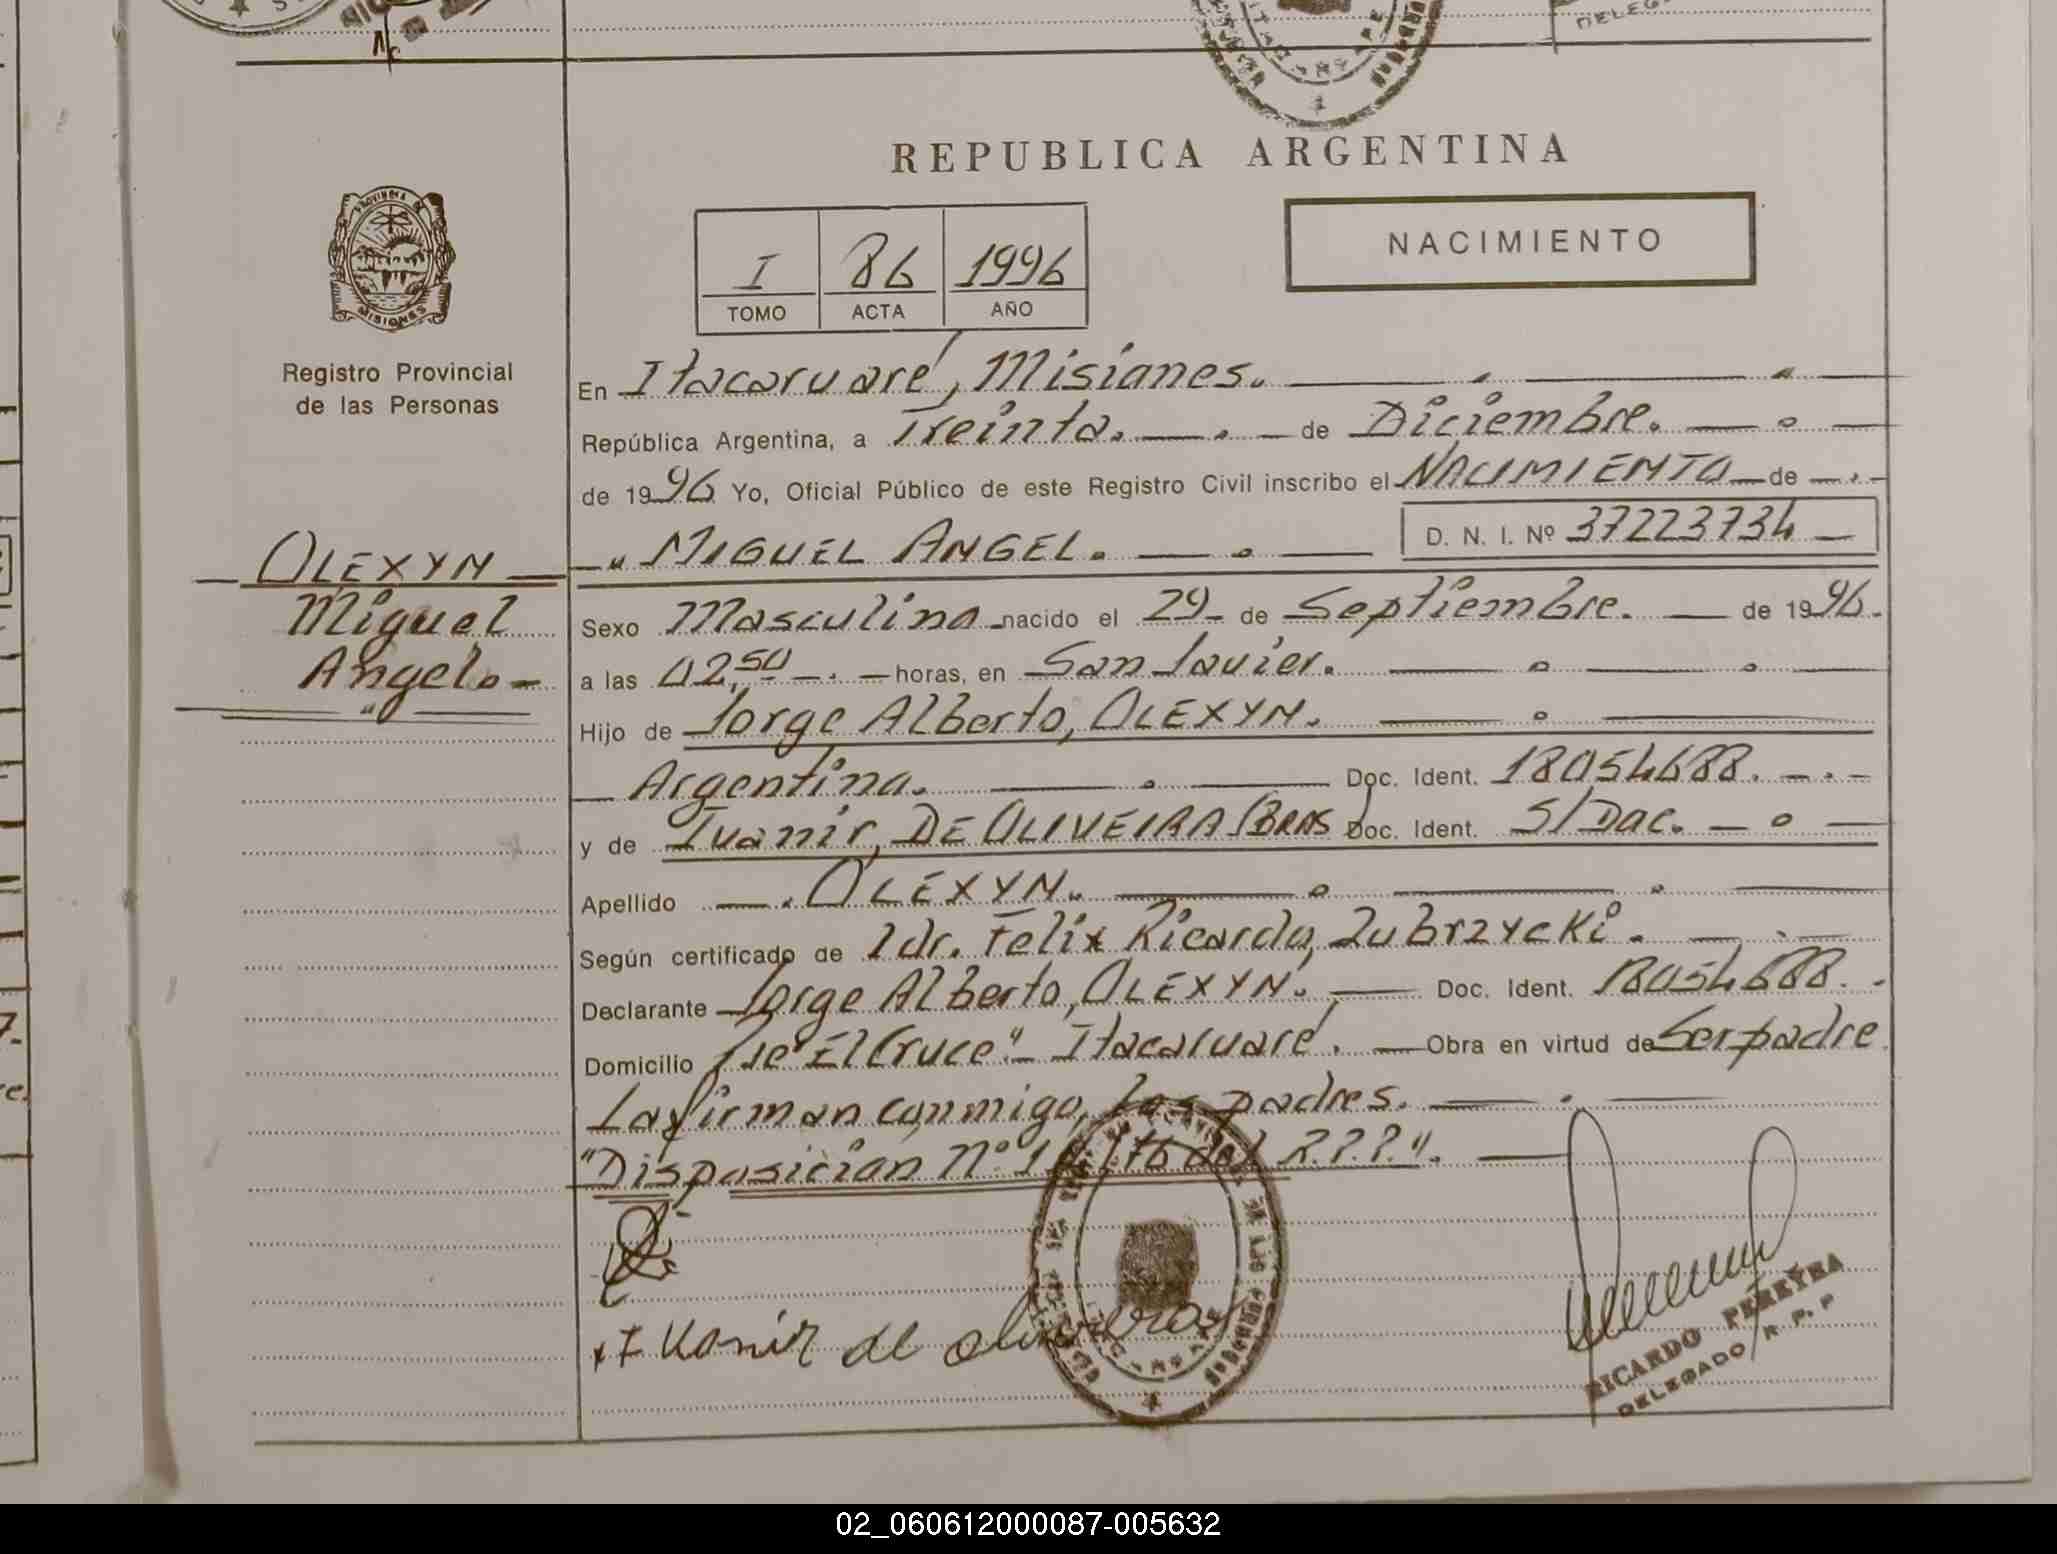 REPUBLICA ARGENTINA
NACIMIENTO
I 86 1996
TOMO ACTA AÑO
PROVINCIA DE
MISIONES
Registro Provincial
de las Personas
OLEXYN
Miguel
Angel.-
En Itacaruaré, Misiones.
República Argentina, a Treinta. de Diciembre.
de 1996 Yo, Oficial Público de este Registro Civil inscribo el NACIMIENTO de
MIGUEL ANGEL. D. N. I. Nº 37223734
Sexo Masculino nacido el 29 de Septiembre. de 1996.
a las 02,50 horas, en San Javier.
Hijo de Jorge Alberto, OLEXYN.
Argentina. Doc. Ident. 18054688.
y de Ivanir, DE OLIVEIRA/BRAS Doc. Ident. S/Doc.
Apellido OLEXYN.
Según certificado de Idr. Felix Ricardo, Zubrzycki.
Declarante Jorge Alberto, OLEXYN. Doc. Ident. 18054688.
Domicilio "El Cruce" Itacaruaré. Obra en virtud de Ser padre
La firman conmigo, los padres.
"Disposición Nº R.P.P.".
Ivanir de oliveira
RICARDO PEREYRA
DELEGADO R. P. P
02_060612000087-005632